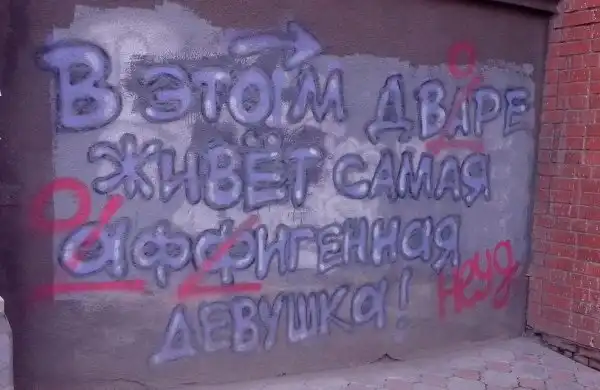 В ЭТОМ ДВАРЕ
ЖИВЁТ САМАЯ
аффигенная
ДЕВУШКА!
о
о
неуд